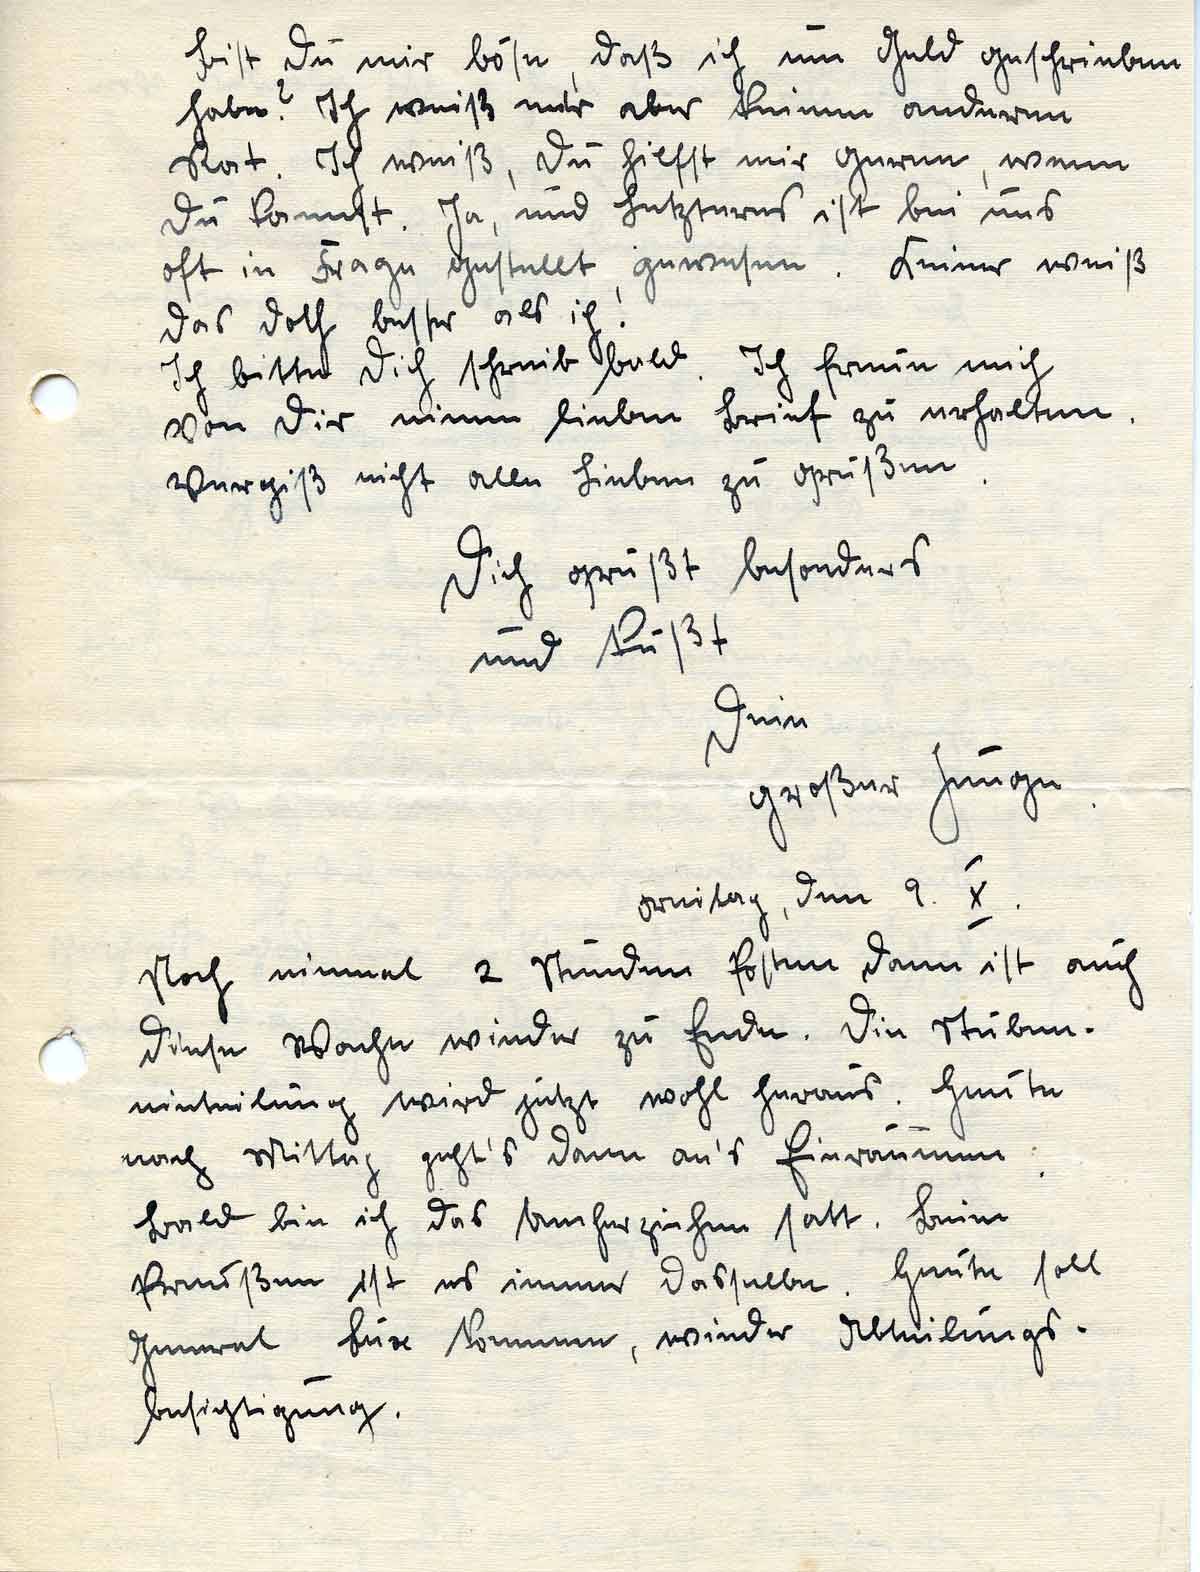 Bist Du mir böse, daß ich um Geld geschrieben
habe? Ich weiß mir aber keinen anderen
Rat. Ich weiß, Du hilfst mir gerne, wenn
Du kannst. Ja, und Letzteres ist bei uns
oft in Frage gestellt gewesen. Keiner weiß
das doch besser als ich!
Ich bitte Dich schreib bald. Ich freue mich
von Dir einen lieben Brief zu erhalten.
Vergiß nicht alle Lieben zu grüßen.
Dich grüßt besonders
und küßt
Dein
großer Junge.
Freitag, den 9. X.
Noch einmal 2 Stunden Posten dann ist auch
diese Wache wieder zu Ende. Die Stuben-
einteilung wird jetzt wohl heraus. Heute
nach Mittag geht's dann an's Einräumen.
Bald bin ich das Umherziehen satt. Beim
Preußen ist es immer dasselbe. Heute soll
General kommen, wieder Abteilungs-
besichtigung.